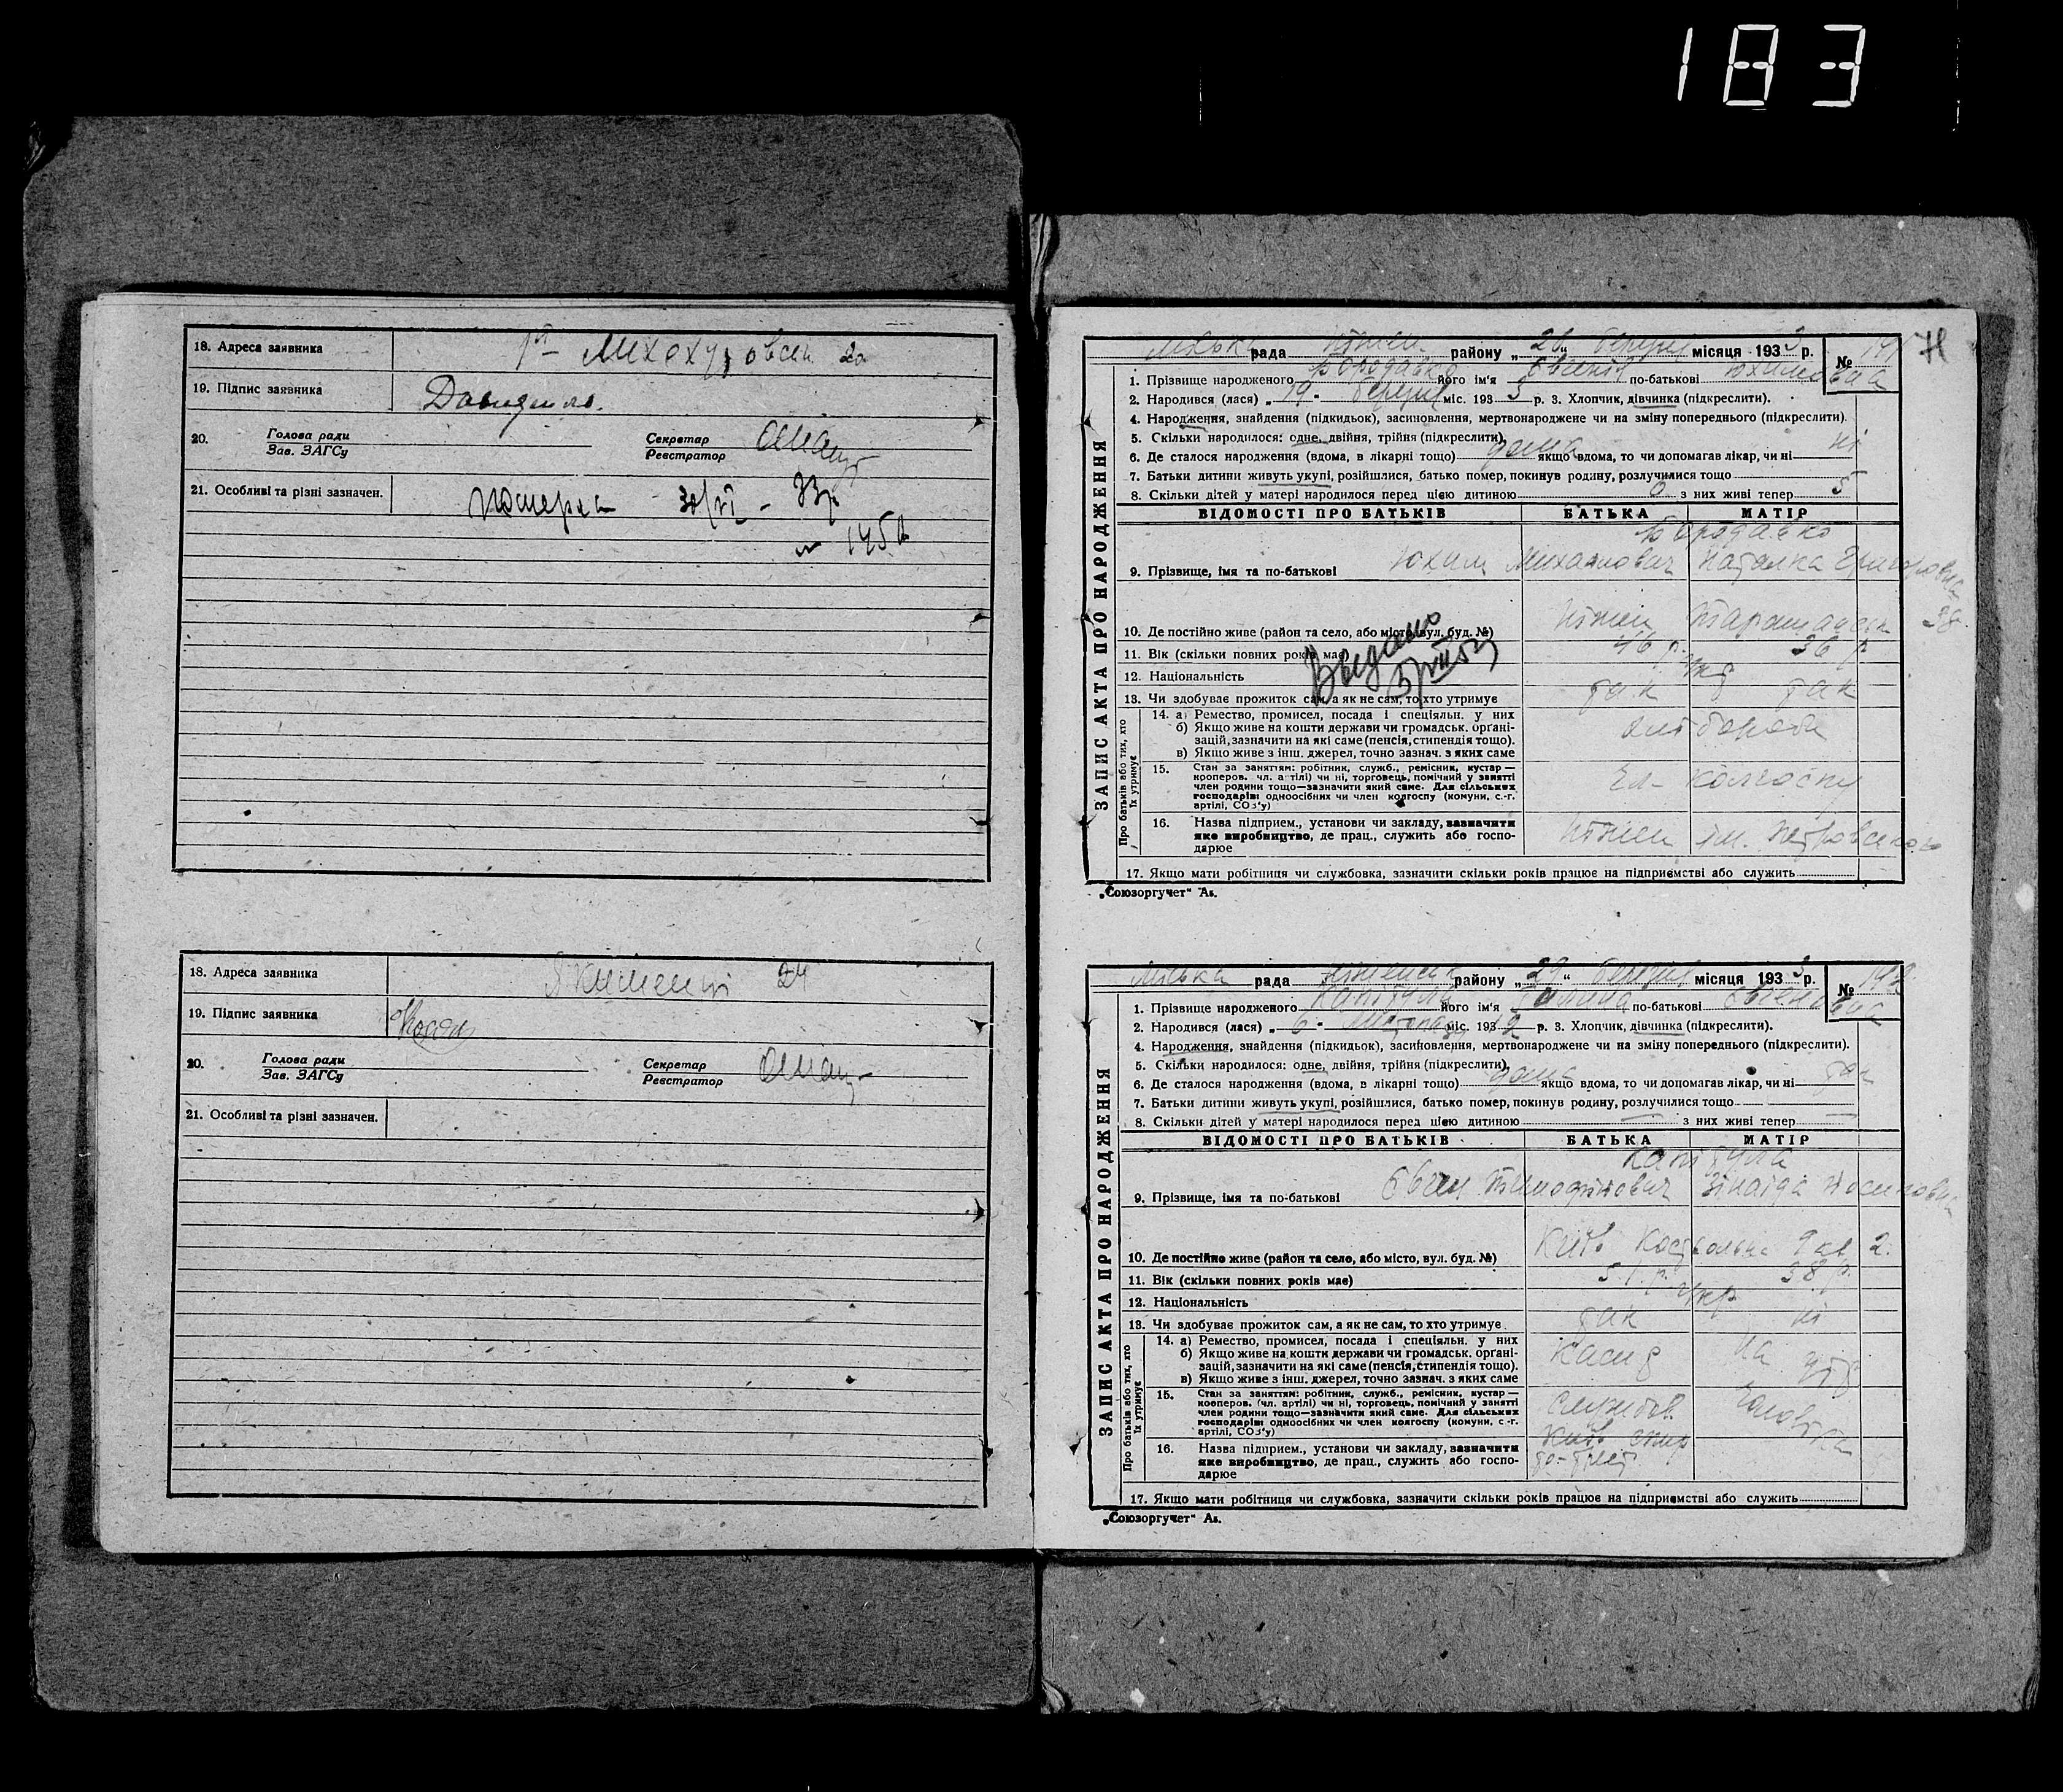 183
18. Адреса заявника
19. Підпис заявника
20. Голова ради
Зав. ЗАГСу
Секретар
Реєстратор
21. Особливі та різні зазначен. померла 30/VI - 33р
18. Адреса заявника 24
19. Підпис заявника
20. Голова ради
Зав. ЗАГСу
Секретар
Реєстратор
21. Особливі та різні зазначен.
ЗАПИС АКТА ПРО НАРОДЖЕННЯ
Міська рада Ніжен району „ “ березня місяця 1933 р. №
1. Прізвище народженого Бородавко його ім'я Євгенія по-батькові Юхимовна
2. Народився (лася) „19“ березня міс. 1933 р. 3. Хлопчик, дівчинка (підкреслити).
4. Народження, знайдення (підкидьок), засиновлення, мертвонароджене чи на зміну попереднього (підкреслити).
5. Скільки народилося: одне, двійня, трійня (підкреслити),
6. Де сталося народження (вдома, в лікарні тощо) дома якщо вдома, то чи допомагав лікар, чи ні ні
7. Батьки дитини живуть укупі, розійшлися, батько помер, покинув родину, розлучилися тощо
8. Скільки дітей у матері народилося перед цією дитиною з них живі тепер 5
ВІДОМОСТІ ПРО БАТЬКІВ БАТЬКА МАТІР
Бородавко
9. Прізвище, імя та по-батькові Юхим Михайлович Наталка Григоровна
10. Де постійно живе (район та село, або місто, вул. буд. №) Ніжен
11. Вік (скільки повних років має) 46 р. 36 р
12. Національність укр
13. Чи здобуває прожиток сам, а як не сам, то хто утримує так так
Про батьків або тих, хто їх утримує
14. а) Ремество, промисел, посада і спеціяльн. у них хліборобы
б) Якщо живе на кошти держави чи громадськ. органі-
зацій, зазначити на які саме (пенсія, стипендія тощо).
в) Якщо живе з інш. джерел, точно зазнач. з яких саме
15. Стан за заняттям: робітник, служб., ремісник, кустар —
кооперов. чл. артілі) чи ні, торговець, помічний у занятті
член родини тощо—зазначити який саме. Для сільських
господарів: одноосібних чи член колгоспу (комуни, с.-г.
артілі, СОЗ'у) Чл- колгоспу
16. Назва підприєм., установи чи закладу, зазначити
яке виробництво, де прац., служить або госпо-
дарює Ніжен ім. Петровського
17. Якщо мати робітниця чи службовка, зазначити скільки років працює на підприємстві або служить
„Союзоргучет“ А₅.
Видано
ЗАПИС АКТА ПРО НАРОДЖЕННЯ
Міська рада Ніженськ району „29“ березня місяця 1933 р. №
1. Прізвище народженого його ім'я Галина по-батькові Євгеновна
2. Народився (лася) „6“ листопада міс. 1932 р. 3. Хлопчик, дівчинка (підкреслити).
4. Народження, знайдення (підкидьок), засиновлення, мертвонароджене чи на зміну попереднього (підкреслити).
5. Скільки народилося: одне, двійня, трійня (підкреслити),
6. Де сталося народження (вдома, в лікарні тощо) дома якщо вдома, то чи допомагав лікар, чи ні так
7. Батьки дитини живуть укупі, розійшлися, батько помер, покинув родину, розлучилися тощо
8. Скільки дітей у матері народилося перед цією дитиною — з них живі тепер —
ВІДОМОСТІ ПРО БАТЬКІВ БАТЬКА МАТІР
9. Прізвище, імя та по-батькові Євген Тимофійович Зінаіда Йосиповна
10. Де постійно живе (район та село, або місто, вул. буд. №) Київ Костьольна 9 кв 2.
11. Вік (скільки повних років має) 51 р. 38 р.
12. Національність укр
13. Чи здобуває прожиток сам, а як не сам, то хто утримує так ні
Про батьків або тих, хто їх утримує
14. а) Ремество, промисел, посада і спеціяльн. у них Касир на утр
б) Якщо живе на кошти держави чи громадськ. органі-
зацій, зазначити на які саме (пенсія, стипендія тощо).
в) Якщо живе з інш. джерел, точно зазнач. з яких саме
15. Стан за заняттям: робітник, служб., ремісник, кустар —
кооперов. (чл. артілі) чи ні, торговець, помічний у занятті
член родини тощо—зазначити який саме. Для сільських
господарів: одноосібних чи член колгоспу (комуни, с.-г.
артілі, СОЗ'у) службов. чоловіка
16. Назва підприєм., установи чи закладу, зазначити
яке виробництво, де прац., служить або госпо-
дарює Київ спир
17. Якщо мати робітниця чи службовка, зазначити скільки років працює на підприємстві або служить
„Союзоргучет“ А₅.